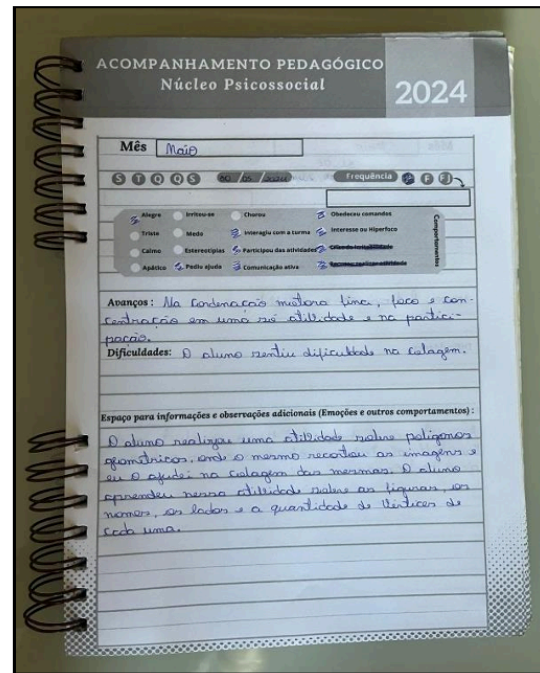 ACOMPANHAMENTO PEDAGÓGICO
Núcleo Psicossocial
2024
Mês Maio
S T Q Q S /05/2024 frequência P F FJ
Alegre Irritou-se Chorou Obedeceu comandos
Triste Medo Interagiu com a turma Interesse ou Hiperfoco
Calmo Estereotipias Participou das atividades
Apático Pediu ajuda Comunicação ativa Recusou realizar atividade
Comportamentos
Avanços: Na Cordenacaõ motora fina, foco e con-
centração em uma só atividade e na partici-
pação.
Dificuldades: O aluno sentiu dificuldade na Colagem.
Espaço para informações e observações adicionais (Emoções e outros comportamentos):
O aluno realizou uma atividade sobre poligonos
geométricos, onde o mesmo recortou as imagens e
eu o ajudei na colagem das mesmas. O aluno
aprendeu nessa atividade sobre as figuras, os
nomes, os lados e a quantidade de Vértices de
cada uma.